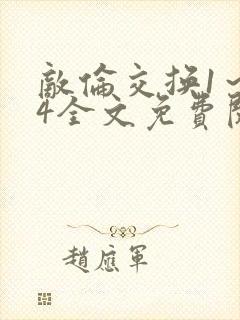 敵倫交换1～
4全文免費閱
趙應軍